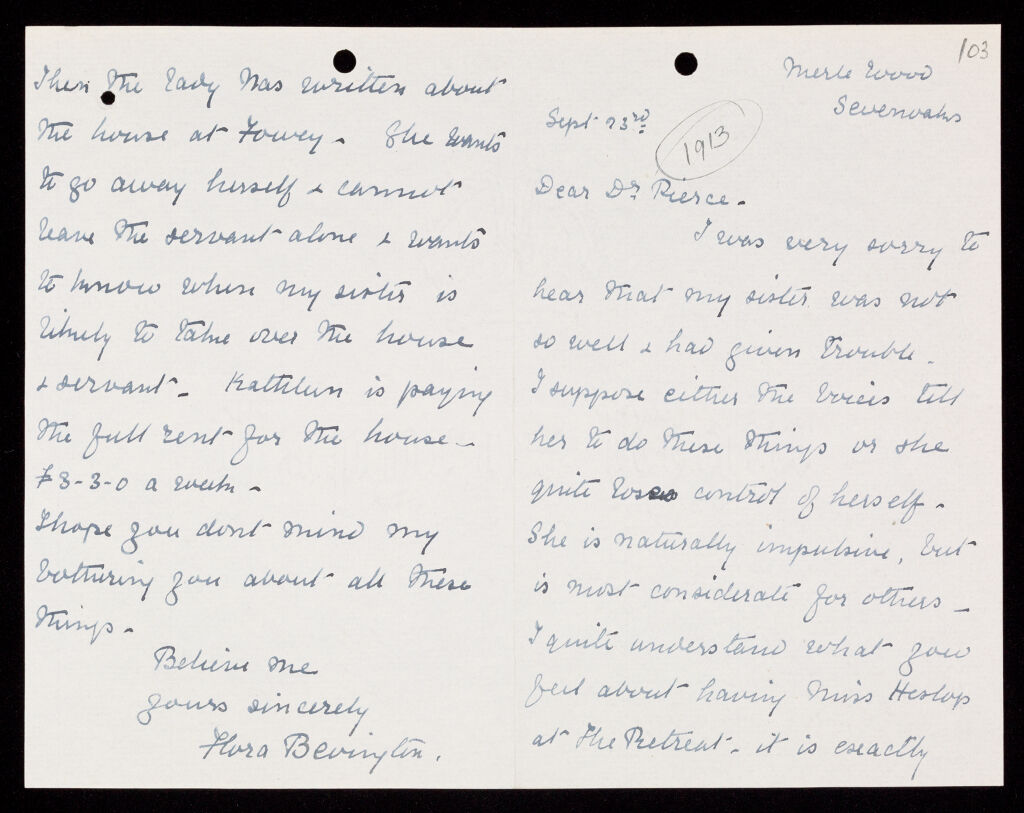 103
Merle Wood
Sevenoaks
Sept 23rd
1913
Dear Dr. Pierce -
I was very sorry to
hear that my sister was not
so well & had given trouble -
I suppose either the voices tell
her to do these things or she
quite loses control of herself -
She is naturally impulsive, but
is most considerate for others -
I quite understand what you
feel about having Miss Heslop
at The Retreat - it is exactly
Then the lady has written about
the house at Fowey - She wants
to go away herself & cannot
leave the servant alone & wants
to know when my sister is
likely to take over the house
& servant - Kathleen is paying
the full rent for the house -
£3-3-0 a week -
I hope you dont mind my
bothering you about all these
things -
Believe me
yours sincerely
Flora Bevington.